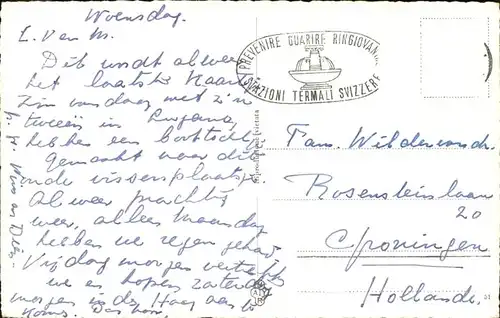 Woensdag.
L. Van M.
Dit wordt alweer
het laatste kaartje
Zijn vandaag met z'n
tweeën in Lugano,
hebben een boottochtje
gemaakt naar dit
oude vissersplaatsje
Al weer prachtig
weer, alleen Maandag
hebben we regen gehad
Vrijdag morgen vertrek
we en hopen zaterdag
morgen in den Haag aan te
komen. Das
PREVENIRE GUARIRE RINGIOVANIRE
STAZIONI TERMALI SVIZZERE
Fam. Wildervanck.
Rosensteinlaan
20
Groningen
Hollande.